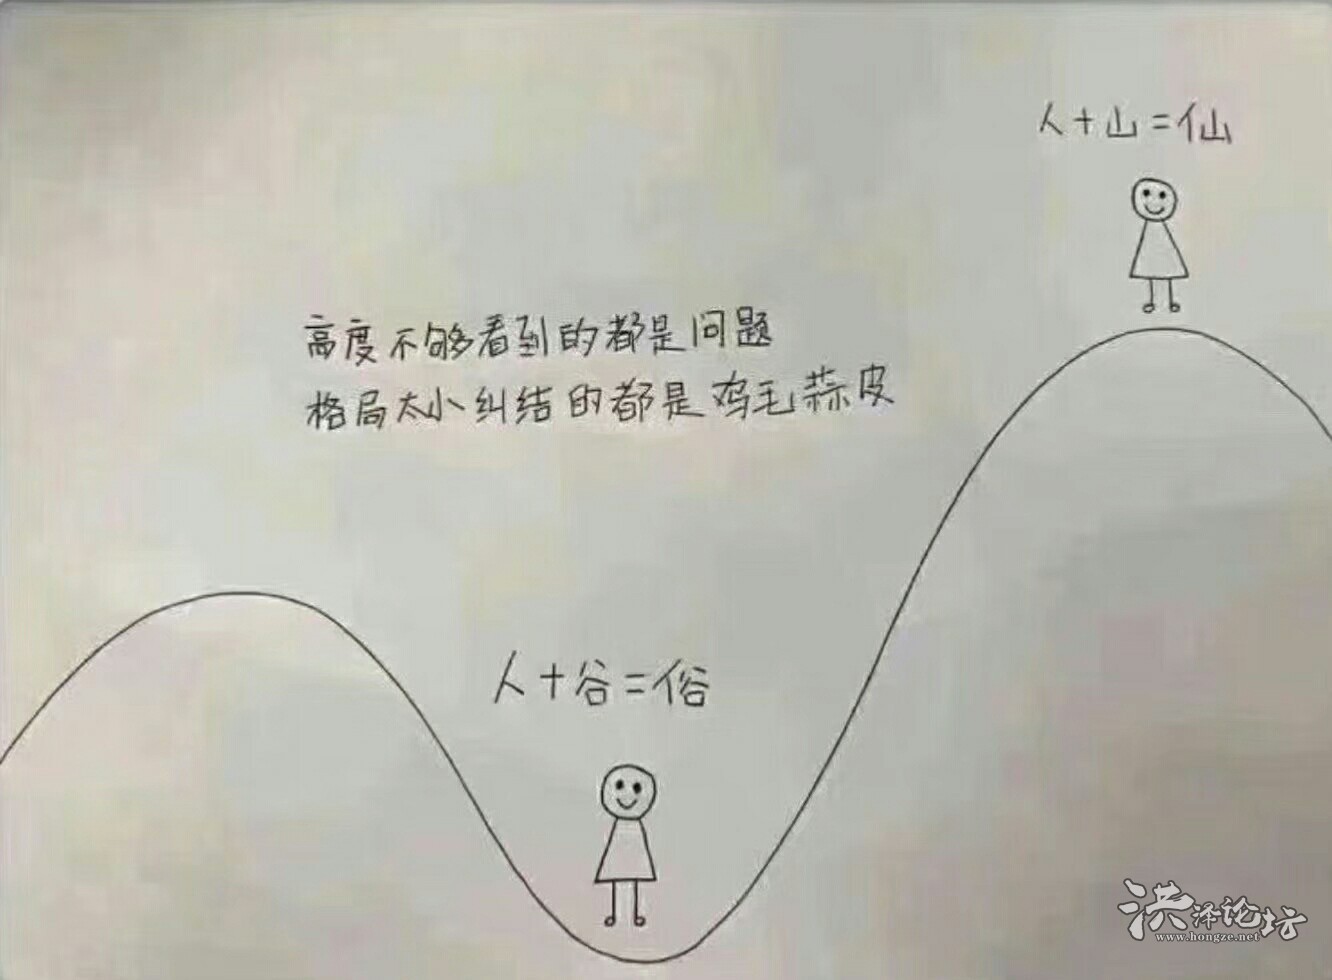 人+山=仙
高度不够看到的都是问题
格局太小纠结的都是鸡毛蒜皮
人+谷=俗
洪泽论坛
www.hongze.net